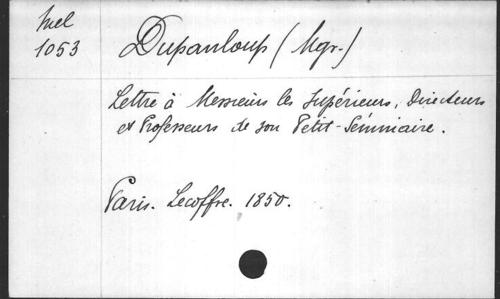 Mel
1053
Dupanloup (Mgr.)
Lettre à Messieurs les Supérieurs, Directeurs
et Professeurs de son Petit-Séminaire.
Paris. Lecoffre. 1850.